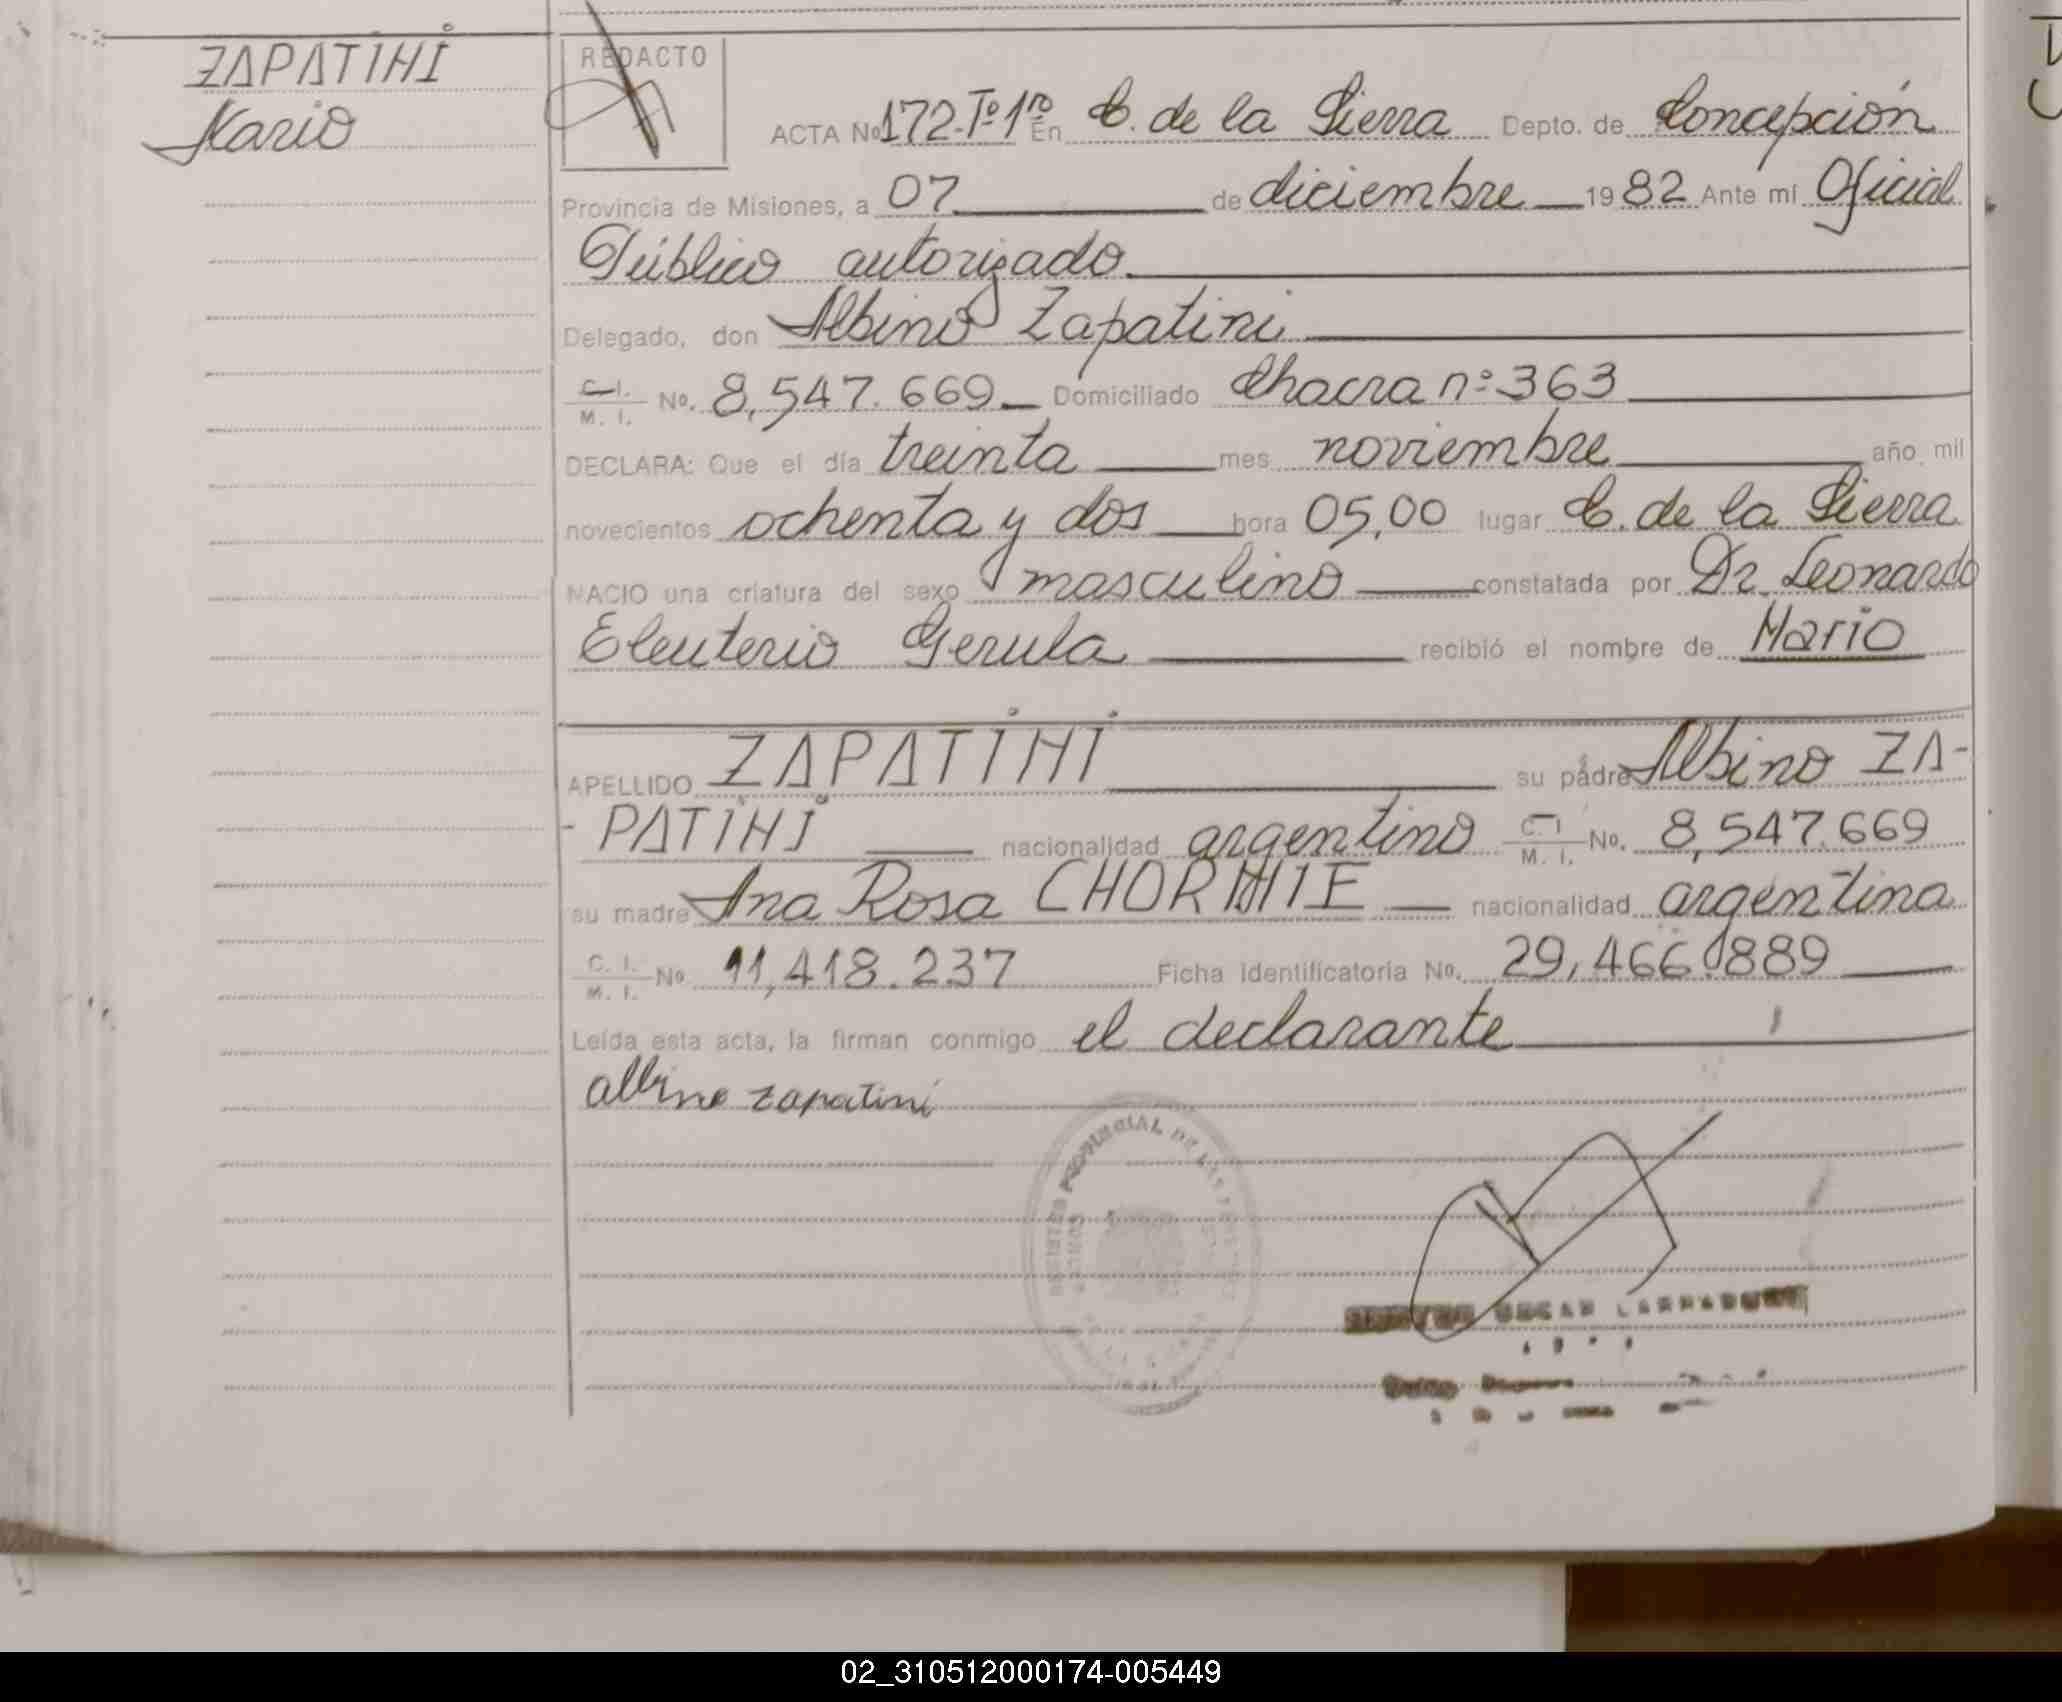 ZAPATINI
Mario
REDACTO
ACTA No 172-Tº1ro En C. de la Sierra Depto. de Concepción
Provincia de Misiones, a 07 de diciembre 1982 Ante mí Oficial
Público autorizado.
Delegado, don Albino Zapatini
C. I. / M. I. No. 8,547.669 Domiciliado Chacra nº 363
DECLARA: Que el día treinta mes noviembre año mil
novecientos ochenta y dos hora 05,00 lugar C. de la Sierra
NACIO una criatura del sexo masculino constatada por Dr. Leonardo
Eleuterio Gerula recibió el nombre de Mario
APELLIDO ZAPATINI su padre Albino ZA-
-PATINI nacionalidad argentino C. I. / M. I. No. 8,547.669
su madre Ana Rosa nacionalidad argentina
C. I. / M. I. No. 11,418.237 Ficha identificatoria No. 29,466.889
Leída esta acta, la firman conmigo el declarante
albino zapatini
PROVINCIAL DE LAS
OSCAR
02_310512000174-005449